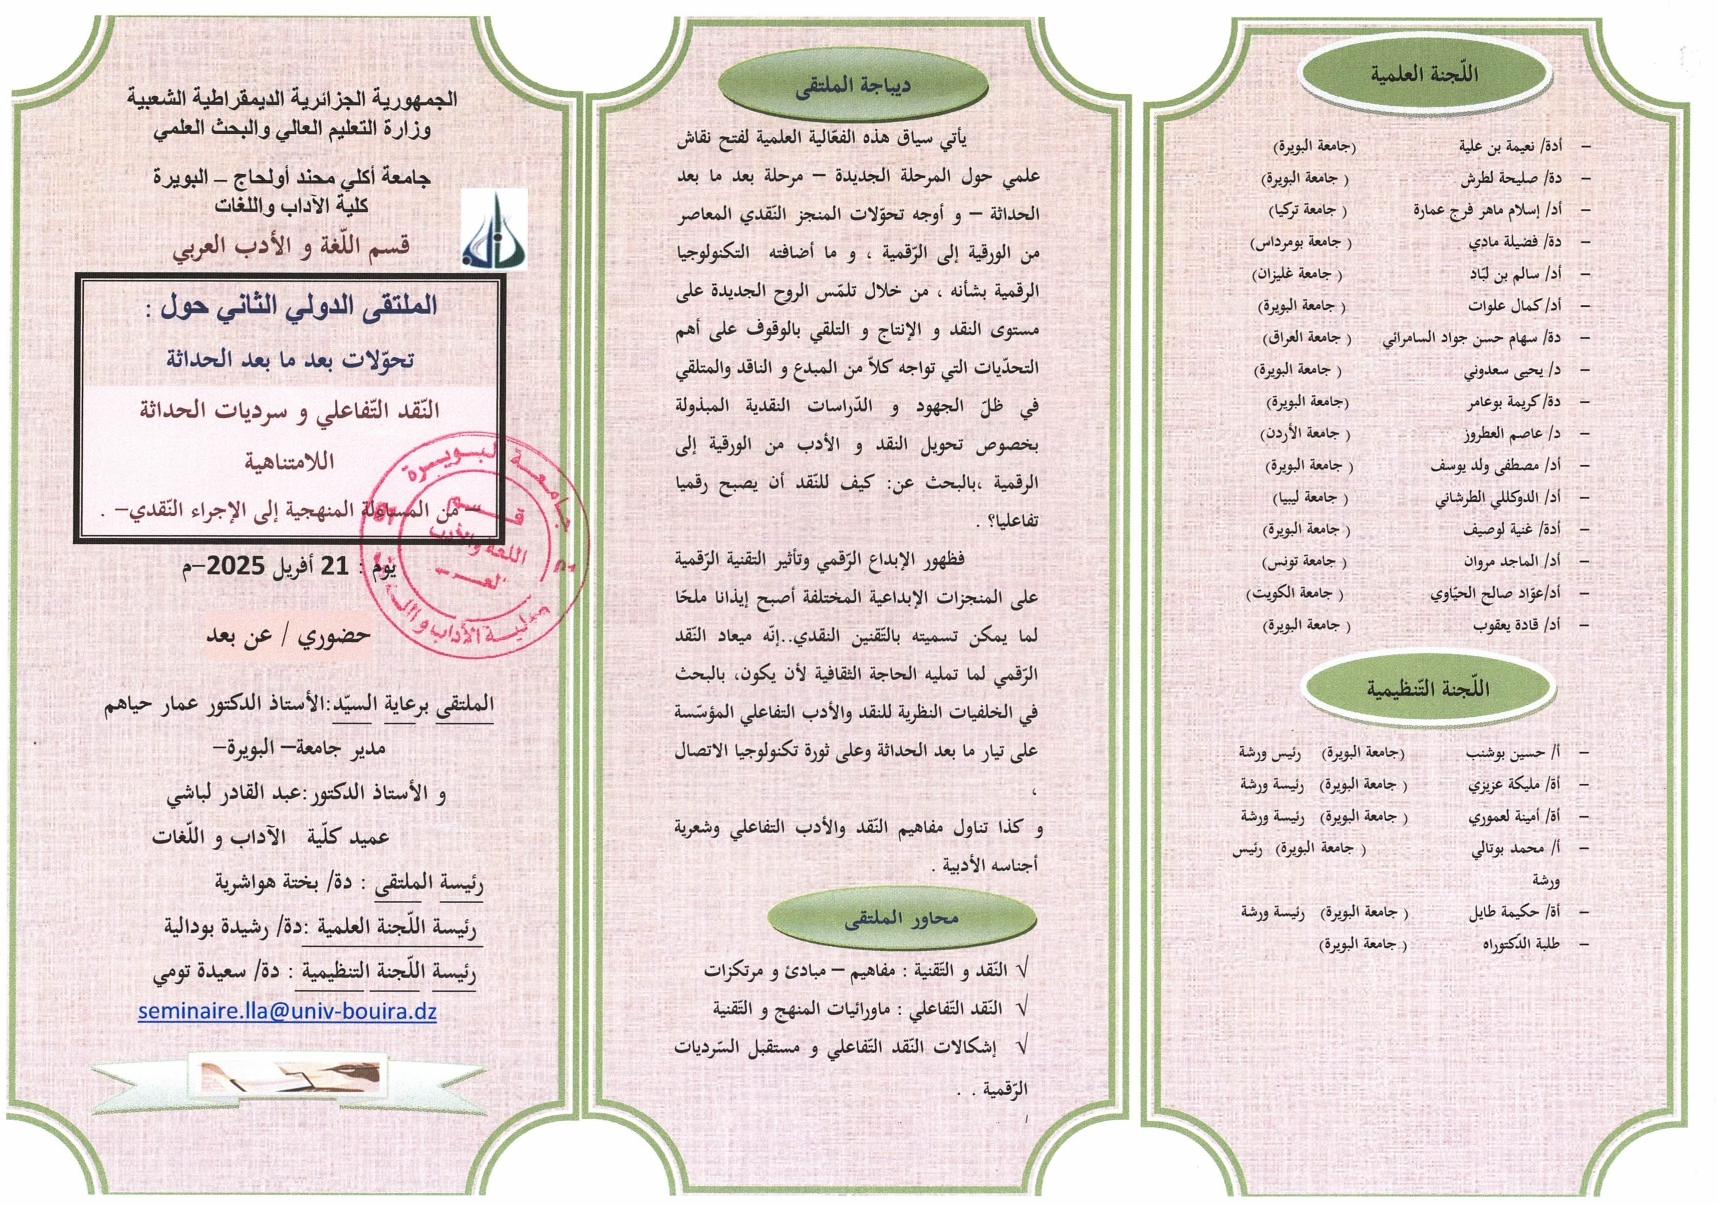 الجمهورية الجزائرية الديمقراطية الشعبية
وزارة التعليم العالي والبحث العلمي
جامعة أكلي محند أولحاج – البويرة
كلية الآداب واللغات
قسم اللّغة و الأدب العربي
الملتقى الدولي الثاني حول :
تحوّلات بعد ما بعد الحداثة
النّقد التّفاعلي و سرديات الحداثة
اللامتناهية
– من المساءلة المنهجية إلى الإجراء النّقدي– .
يوم : 21 أفريل 2025–م
حضوري / عن بعد
جامعة البويرة
قسم
اللغة والأدب
الملتقى برعاية السيّد:الأستاذ الدكتور عمار حياهم
مدير جامعة– البويرة–
و الأستاذ الدكتور:عبد القادر لباشي
عميد كلّية الآداب و اللّغات
رئيسة الملتقى : دة/ بختة هواشرية
رئيسة اللّجنة العلمية :دة/ رشيدة بودالية
رئيسة اللّجنة التّنظيمية : دة/ سعيدة تومي
seminaire.lla@univ-bouira.dz
ديباجة الملتقى
يأتي سياق هذه الفعّالية العلمية لفتح نقاش
علمي حول المرحلة الجديدة – مرحلة بعد ما بعد
الحداثة – و أوجه تحوّلات المنجز النّقدي المعاصر
من الورقية إلى الرّقمية ، و ما أضافته التكنولوجيا
الرقمية بشأنه ، من خلال تلمّس الروح الجديدة على
مستوى النقد و الإنتاج و التلقي بالوقوف على أهم
التحدّيات التي تواجه كلاّ من المبدع و الناقد والمتلقي
في ظلّ الجهود و الدّراسات النقدية المبذولة
بخصوص تحويل النقد و الأدب من الورقية إلى
الرقمية ،بالبحث عن: كيف للنّقد أن يصبح رقميا
تفاعليا؟ .
فظهور الإبداع الرّقمي وتأثير التقنية الرّقمية
على المنجزات الإبداعية المختلفة أصبح إيذانا ملحّا
لما يمكن تسميته بالتّقنين النقدي..إنّه ميعاد النّقد
الرّقمي لما تمليه الحاجة الثقافية لأن يكون، بالبحث
في الخلفيات النظرية للنقد والأدب التفاعلي المؤسّسة
على تيار ما بعد الحداثة وعلى ثورة تكنولوجيا الاتصال
،
و كذا تناول مفاهيم النّقد والأدب التفاعلي وشعرية
أجناسه الأدبية .
محاور الملتقى
√ النّقد و التّقنية : مفاهيم – مبادئ و مرتكزات
√ النّقد التّفاعلي : ماورائيات المنهج و التّقنية
√ إشكالات النّقد التّفاعلي و مستقبل السّرديات
الرّقمية . .
اللّجنة العلمية
– أدة/ نعيمة بن علية (جامعة البويرة)
– دة/ صليحة لطرش ( جامعة البويرة)
– أد/ إسلام ماهر فرج عمارة ( جامعة تركيا)
– دة/ فضيلة مادي ( جامعة بومرداس)
– أد/ سالم بن لبّاد ( جامعة غليزان)
– أد/ كمال علوات ( جامعة البويرة)
– دة/ سهام حسن جواد السامرائي ( جامعة العراق)
– د/ يحيى سعدوني ( جامعة البويرة)
– دة/ كريمة بوعامر (جامعة البويرة)
– د/ عاصم العطروز ( جامعة الأردن)
– أد/ مصطفى ولد يوسف ( جامعة البويرة)
– أد/ الدوكللي الطرشاني ( جامعة ليبيا)
– أدة/ غنية لوصيف ( جامعة البويرة)
– أد/ الماجد مروان ( جامعة تونس)
– أد/عوّاد صالح الحيّاوي ( جامعة الكويت)
– أد/ قادة يعقوب ( جامعة البويرة)
اللّجنة التّنظيمية
– أ/ حسين بوشنب (جامعة البويرة) رئيس ورشة
– أة/ مليكة عزيزي ( جامعة البويرة) رئيسة ورشة
– أة/ أمينة لعموري ( جامعة البويرة) رئيسة ورشة
– أ/ محمد بوتالي ( جامعة البويرة) رئيس
ورشة
– أة/ حكيمة طايل ( جامعة البويرة) رئيسة ورشة
– طلبة الدّكتوراه ( جامعة البويرة)